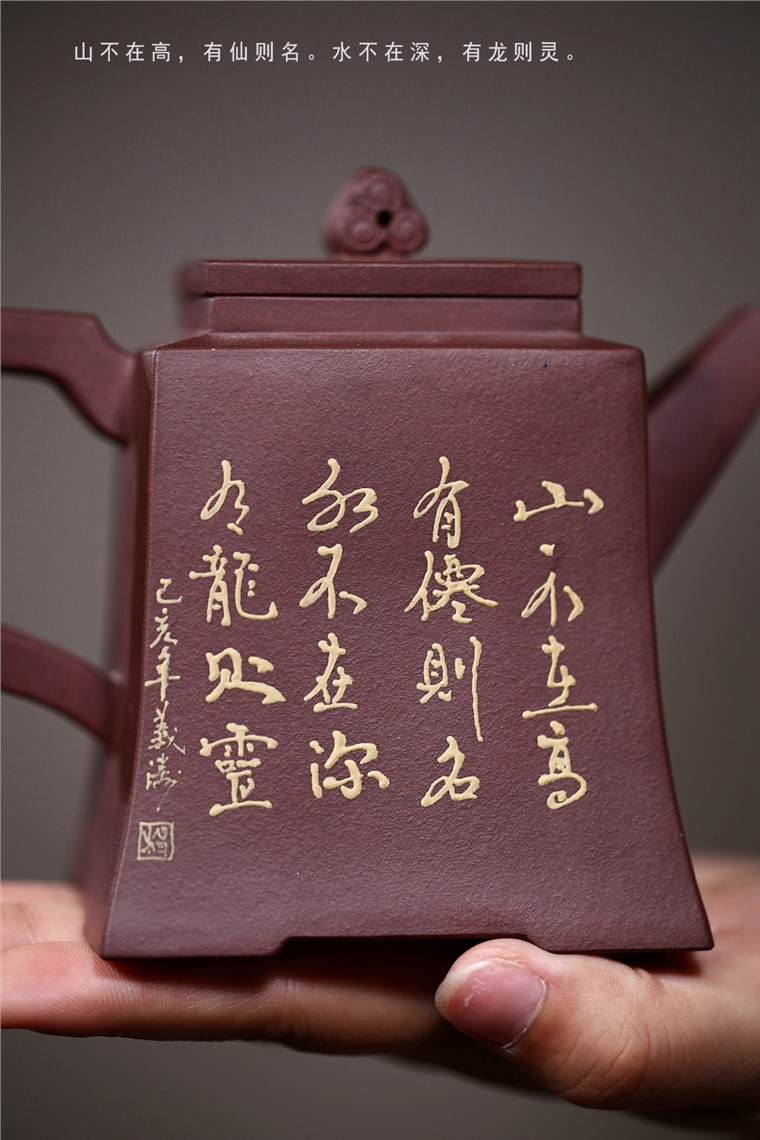 山不在高，有仙则名。水不在深，有龙则灵。
山不在高
有僊則名
水不在深
有龍则靈
己亥年義涛